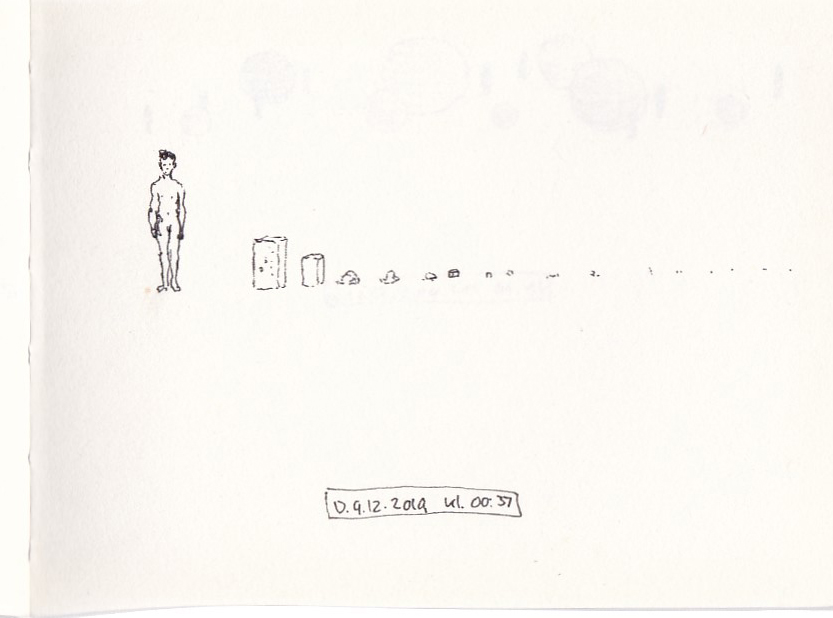 D. 9.12.2019 kl. 00:37